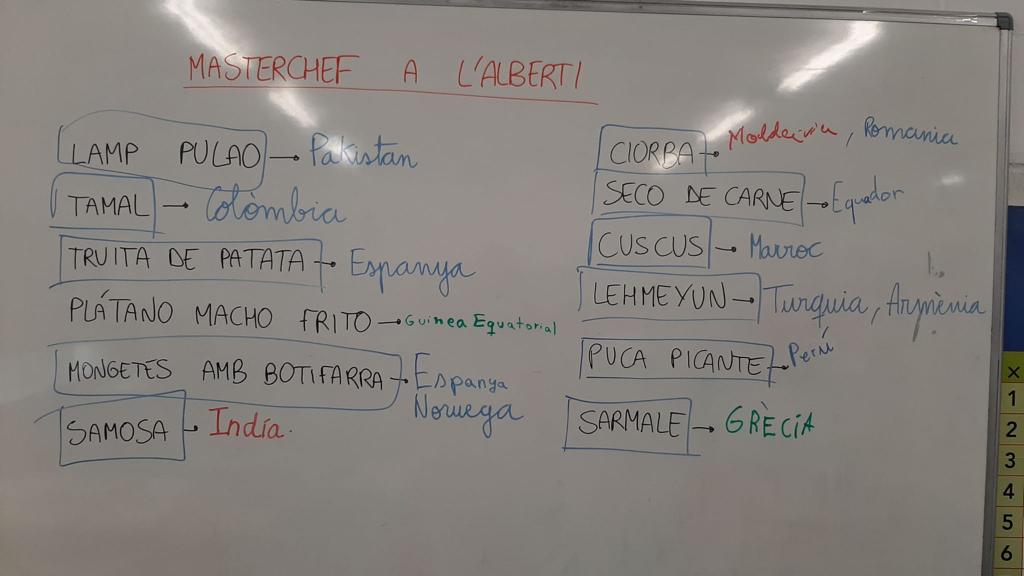 MASTERCHEF A L'ALBERTI
LAMP PULAO → Pakistan
TAMAL → Colòmbia
TRUITA DE PATATA → Espanya
PLÁTANO MACHO FRITO → Guinea Equatorial
MONGETES AMB BOTIFARRA → Espanya
Noruega
SAMOSA → India.
CIORBA → Moldàvia, Romania
SECO DE CARNE → Equador
CUSCUS → Marroc
LEHMEYUN → Turquia, Armènia
PUCA PICANTE → Perú
SARMALE → GRÈCIA
×
1
2
3
4
5
6